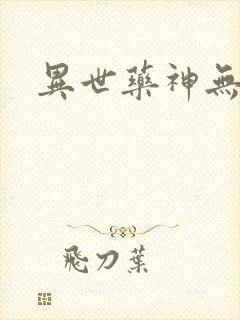 異世藥神無
飛刀葉